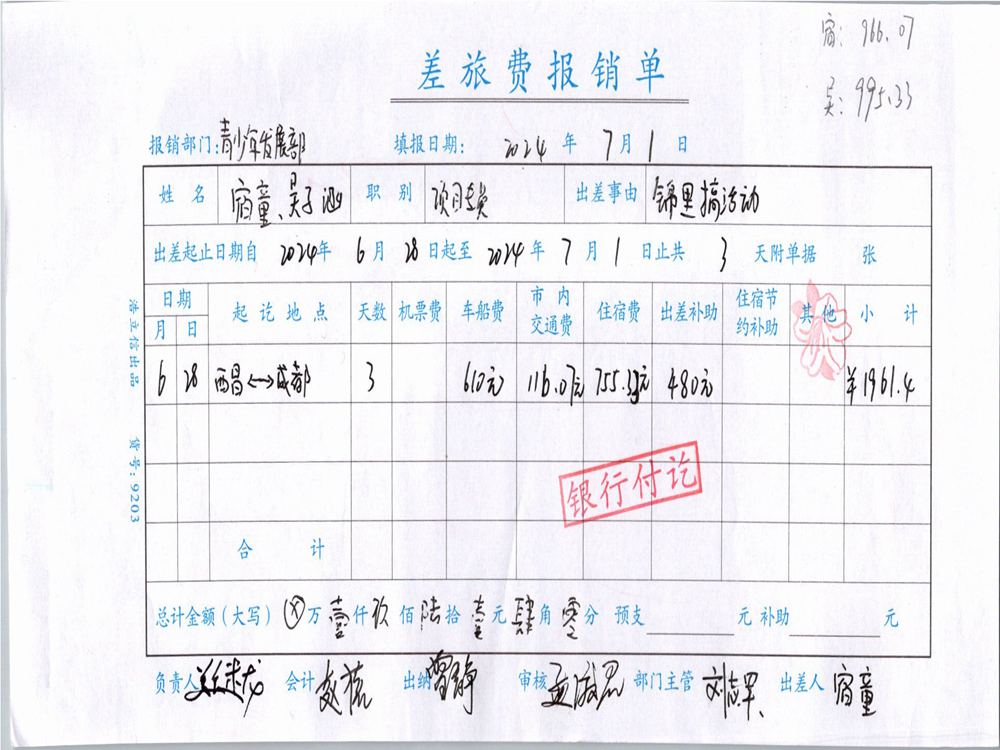 宿: 966.07
吴: 995.33
差旅费报销单
报销部门: 青少年发展部 填报日期: 2024 年 7 月 1 日
姓名 宿童、吴子 职别 项目专员 出差事由 锦里搞活动
出差起止日期自 2024年 6 月 28 日起至 2024 年 7 月 1 日止共 3 天附单据 张
日期 起讫地点 天数 机票费 车船费 市内交通费 住宿费 出差补助 住宿节约补助 其他 小计
月 日
6 28 西昌<->成都 3 610元 116.07元 755.33元 480元 ¥1961.4
银行付讫
合计
总计金额(大写) ⊗万 壹 仟 玖 佰 陆 拾 壹 元 肆 角 零 分 预支 元 补助 元
负责人 会计 出纳 曾静 审核 部门主管 出差人 宿童
浩立信出品 货号: 9203